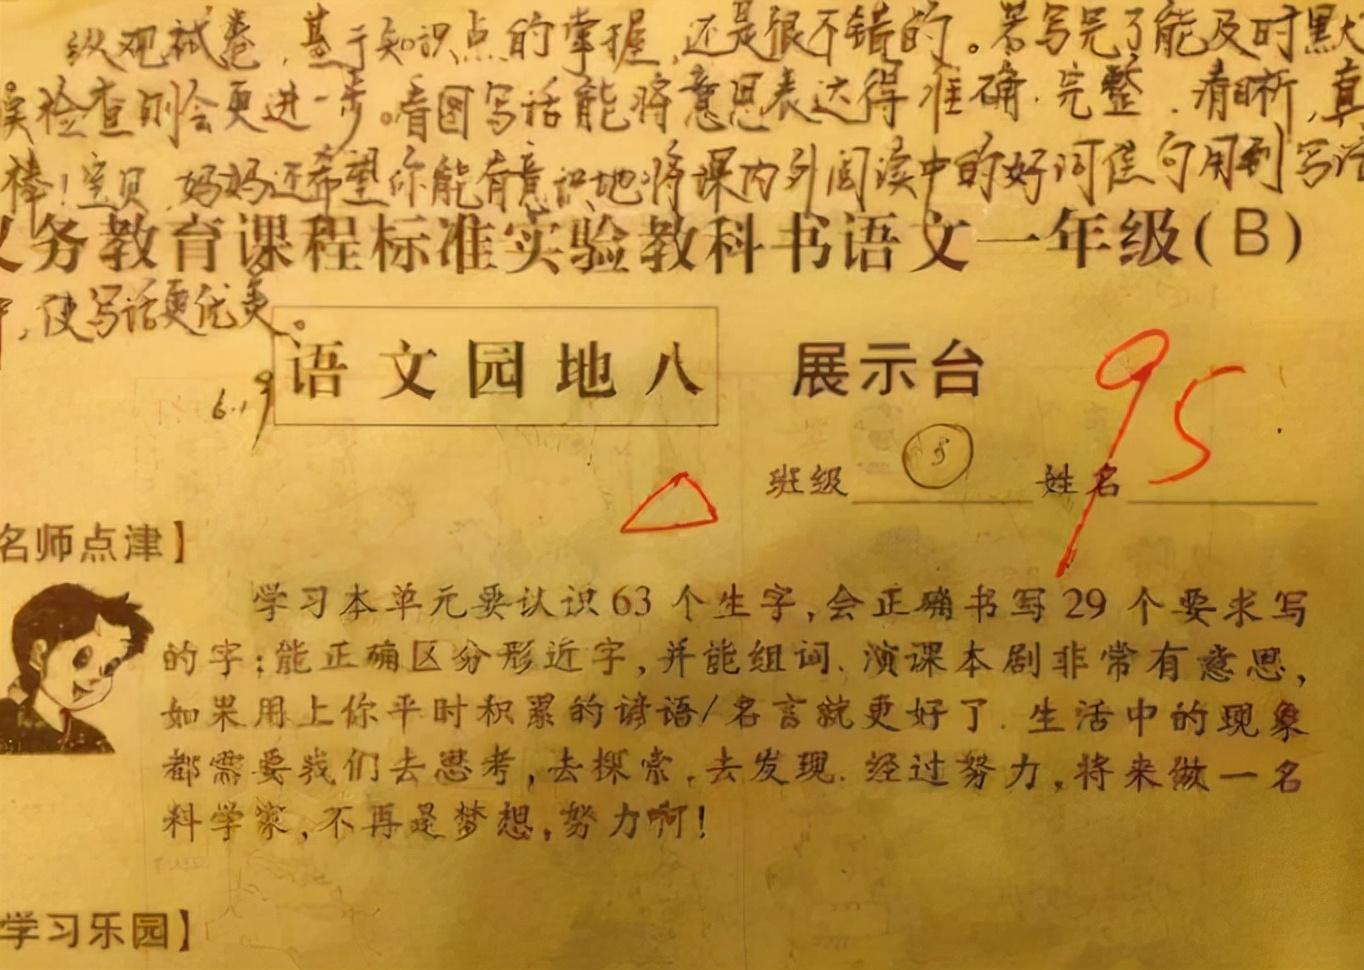 纵观试卷,基于知识点的掌握,还是很不错的。若写完了能及时默
误检查则会更进一步。看图写话能将意思表达得准确.完整.清晰,真
棒!宝贝,妈妈还希望你能有意识地将课内外阅读中的好词佳句用到写话
义务教育课程标准实验教科书语文一年级(B)
中,使写话更优美。
语文园地八 展示台
6.19
95
班级 8 姓名
名师点津】
学习本单元要认识63个生字,会正确书写29个要求写
的字;能正确区分形近字,并能组词.演课本剧非常有意思,
如果用上你平时积累的谚语/名言就更好了.生活中的现象
都需要我们去思考,去探索,去发现.经过努力,将来做一名
科学家,不再是梦想,努力啊!
学习乐园】